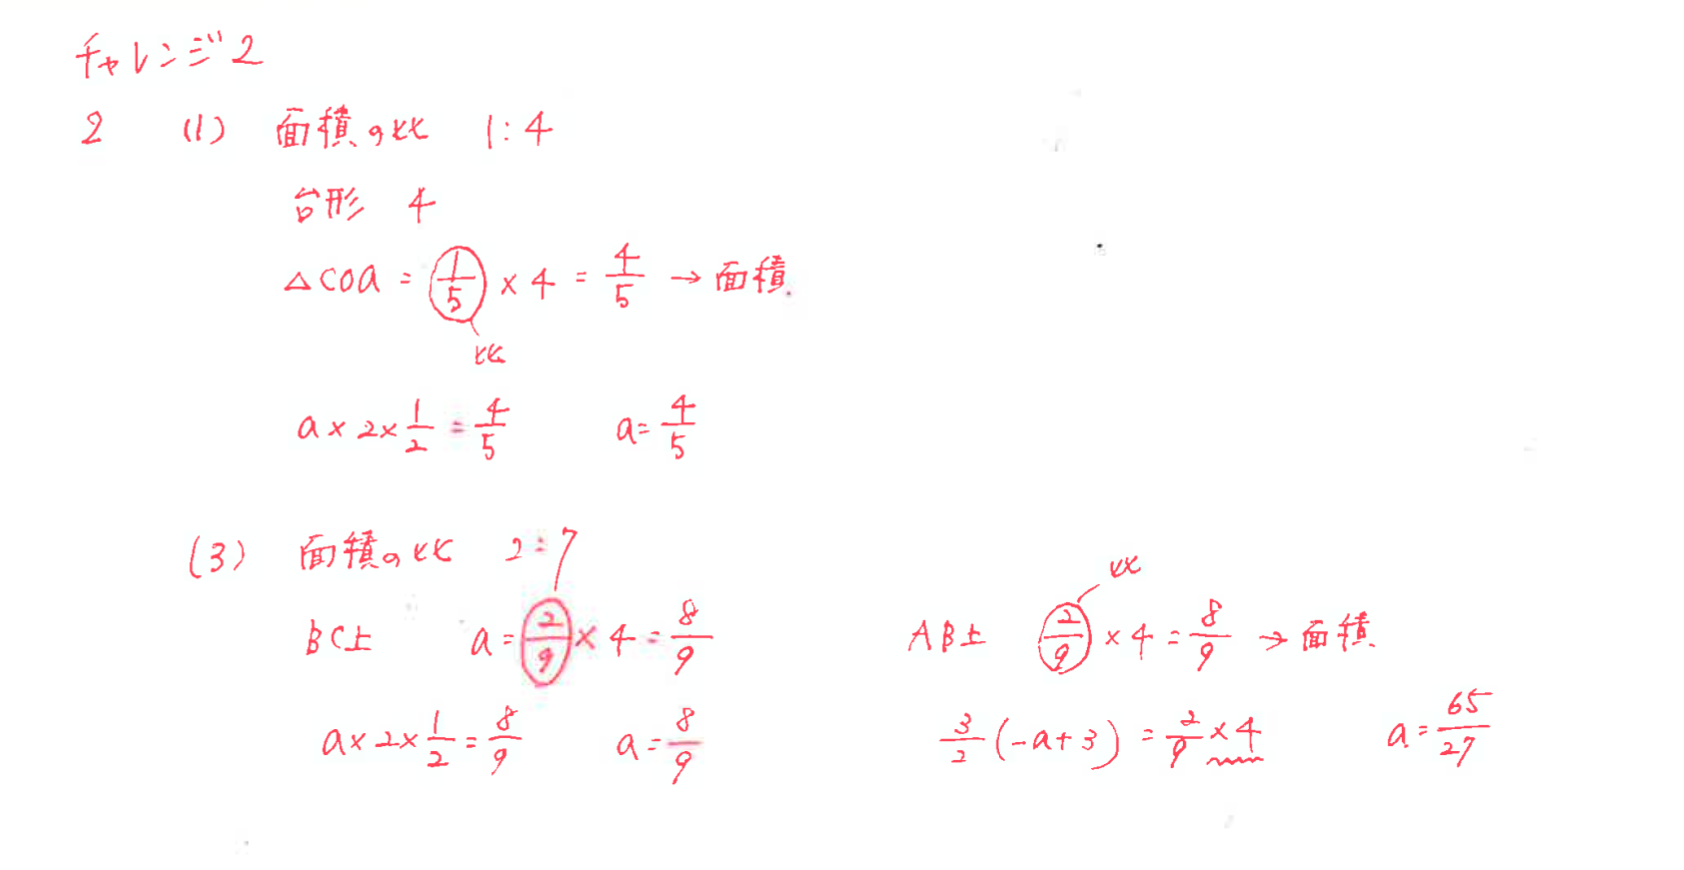 チャレンジ2
2 (1) 面積の比 1:4
台形 4
△COa = 1/5 × 4 = 4/5 → 面積
比
a × 2 × 1/2 = 4/5 a = 4/5
(3) 面積の比 2:7
BC上 a = 2/9 × 4 = 8/9
a × 2 × 1/2 = 8/9 a = 8/9
比
AB上 2/9 × 4 = 8/9 → 面積
3/2 (-a+3) = 2/9 × 4 a = 65/27